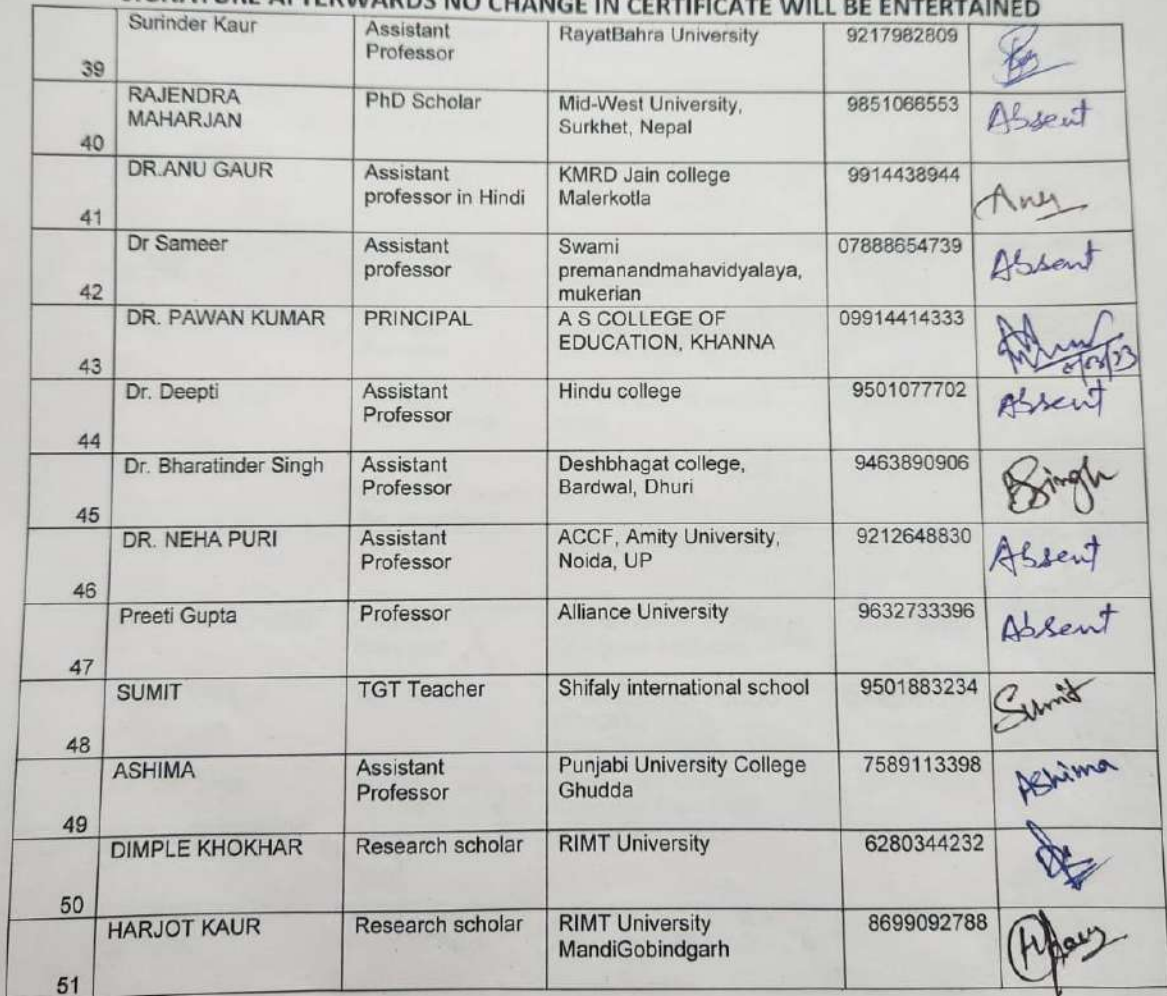 SIGNATURE AFTERWARDS NO CHANGE IN CERTIFICATE WILL BE ENTERTAINED
39 Surinder Kaur Assistant Professor RayatBahra University 9217982809
40 RAJENDRA MAHARJAN PhD Scholar Mid-West University, Surkhet, Nepal 9851066553 Absent
41 DR.ANU GAUR Assistant professor in Hindi KMRD Jain college Malerkotla 9914438944 Anu
42 Dr Sameer Assistant professor Swami premanandmahavidyalaya, mukerian 07888654739 Absent
43 DR. PAWAN KUMAR PRINCIPAL A S COLLEGE OF EDUCATION, KHANNA 09914414333
44 Dr. Deepti Assistant Professor Hindu college 9501077702 Absent
45 Dr. Bharatinder Singh Assistant Professor Deshbhagat college, Bardwal, Dhuri 9463890906 BSingh
46 DR. NEHA PURI Assistant Professor ACCF, Amity University, Noida, UP 9212648830 Absent
47 Preeti Gupta Professor Alliance University 9632733396 Absent
48 SUMIT TGT Teacher Shifaly international school 9501883234 Sumit
49 ASHIMA Assistant Professor Punjabi University College Ghudda 7589113398 Ashima
50 DIMPLE KHOKHAR Research scholar RIMT University 6280344232
51 HARJOT KAUR Research scholar RIMT University MandiGobindgarh 8699092788